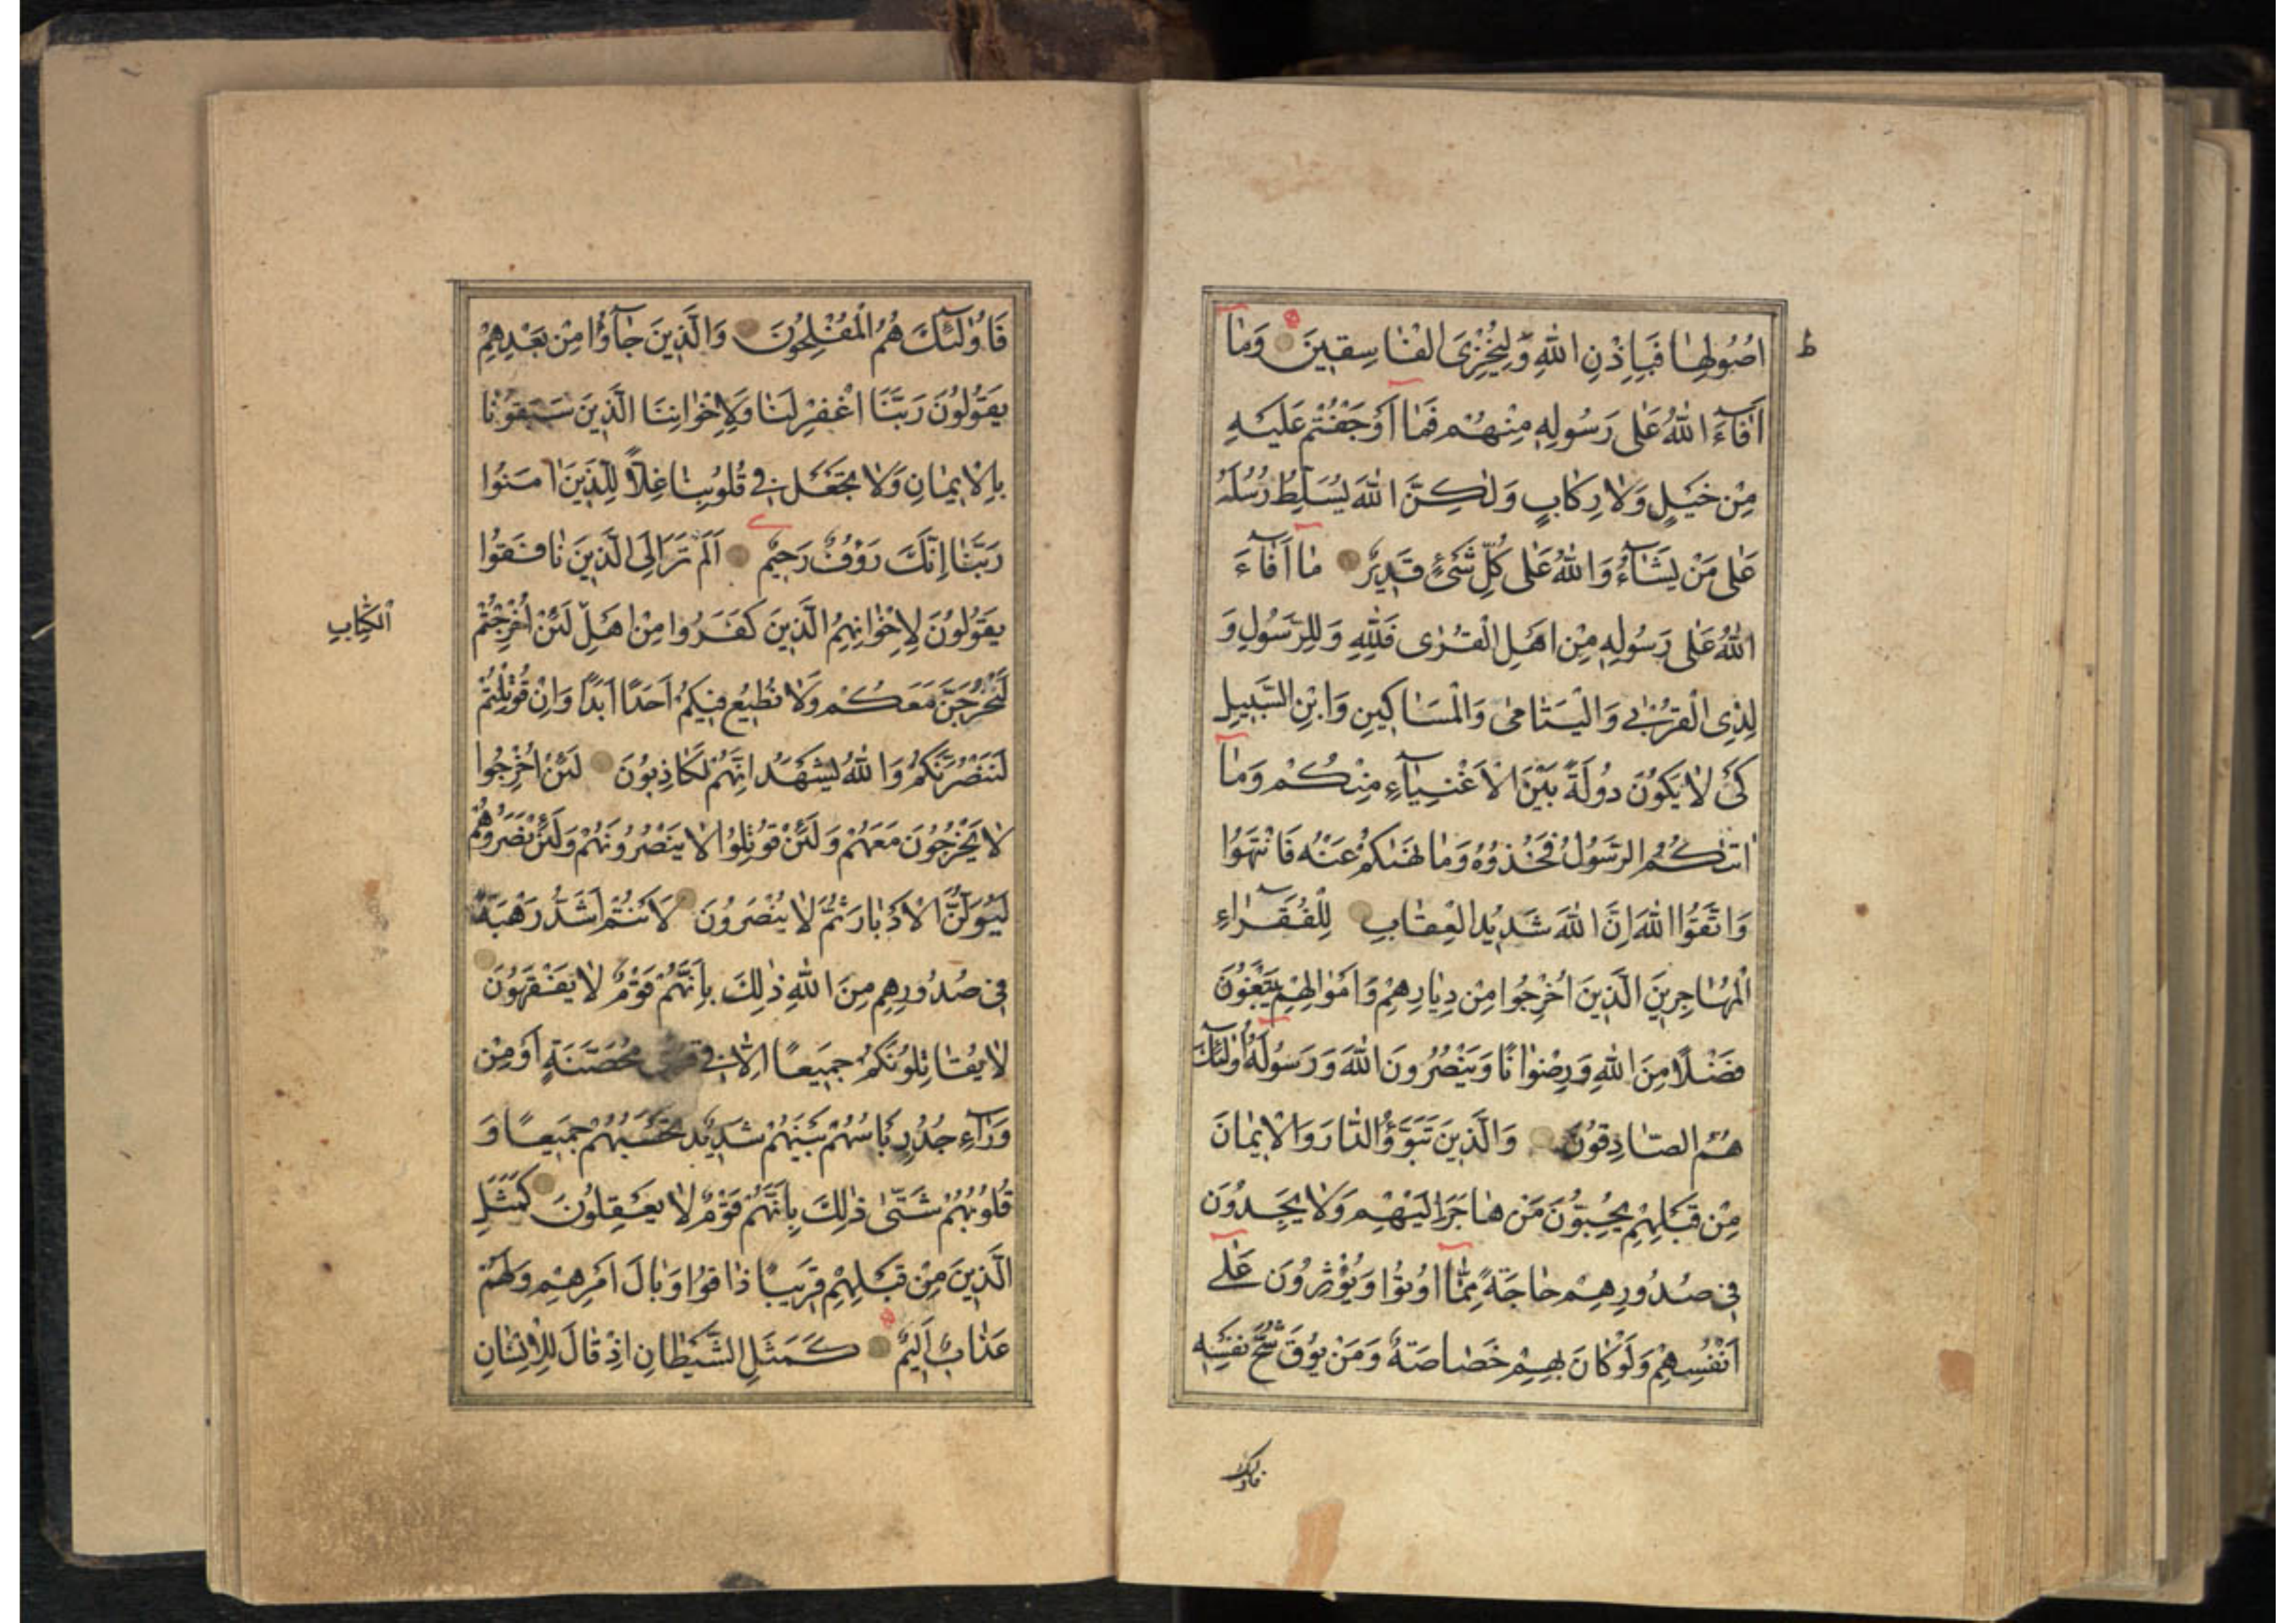 اُصُولِهٰا فَبِاِذْنِ اللّٰهِ وَلِيُخْزِىَ الْفٰاسِقِينَ وَمٰٓا
ط
اَفٰآءَ اللّٰهُ عَلٰى رَسُولِهِ مِنْهُمْ فَمٰٓا اَوْجَفْتُمْ عَلَيْهِ
مِنْ خَيْلٍ وَلٰا رِكٰابٍ وَلٰكِنَّ اللّٰهَ يُسَلِّطُ رُسُلَهُ
عَلٰى مَنْ يَشٰٓاءُ وَاللّٰهُ عَلٰى كُلِّ شَىْءٍ قَدِيرٌ مٰٓا اَفٰٓاءَ
اللّٰهُ عَلٰى رَسُولِهِ مِنْ اَهْلِ الْقُرٰى فَلِلّٰهِ وَلِلرَّسُولِ وَ
لِذِى الْقُرْبٰى وَالْيَتٰامٰى وَالْمَسٰاكِينِ وَابْنِ السَّبِيلِ
كَىْ لٰا يَكُونَ دُولَةً بَيْنَ الْاَغْنِيٰٓاءِ مِنْكُمْ وَمٰٓا
اٰتٰىكُمُ الرَّسُولُ فَخُذُوهُ وَمٰا نَهٰىكُمْ عَنْهُ فَانْتَهُوا
وَاتَّقُوا اللّٰهَ اِنَّ اللّٰهَ شَدِيدُ الْعِقٰابِ لِلْفُقَرٰٓاءِ
الْمُهٰاجِرِينَ الَّذِينَ اُخْرِجُوا مِنْ دِيٰارِهِمْ وَاَمْوٰالِهِمْ يَبْتَغُونَ
فَضْلًا مِنَ اللّٰهِ وَرِضْوٰانًا وَيَنْصُرُونَ اللّٰهَ وَرَسُولَهُ اُولٰٓئِكَ
هُمُ الصّٰادِقُونَ وَالَّذِينَ تَبَوَّؤُ الدّٰارَ وَالْاِيمٰانَ
مِنْ قَبْلِهِمْ يُحِبُّونَ مَنْ هٰاجَرَ اِلَيْهِمْ وَلٰا يَجِدُونَ
فِى صُدُورِهِمْ حٰاجَةً مِمّٰٓا اُوتُوا وَيُؤْثِرُونَ عَلٰٓى
اَنْفُسِهِمْ وَلَوْ كٰانَ بِهِمْ خَصٰاصَةٌ وَمَنْ يُوقَ شُحَّ نَفْسِهِ
فاولئك
فَاُولٰٓئِكَ هُمُ الْمُفْلِحُونَ وَالَّذِينَ جٰٓاؤُا مِنْ بَعْدِهِمْ
يَقُولُونَ رَبَّنَا اغْفِرْ لَنٰا وَلِاِخْوٰانِنَا الَّذِينَ سَبَقُونٰا
بِالْاِيمٰانِ وَلٰا تَجْعَلْ فِى قُلُوبِنٰا غِلًّا لِلَّذِينَ اٰمَنُوا
رَبَّنٰا اِنَّكَ رَؤُفٌ رَحِيمٌ اَلَمْ تَرَ اِلَى الَّذِينَ نٰافَقُوا
يَقُولُونَ لِاِخْوٰانِهِمُ الَّذِينَ كَفَرُوا مِنْ اَهْلِ لَئِنْ اُخْرِجْتُمْ
الْكِتٰابِ
لَنَخْرُجَنَّ مَعَكُمْ وَلٰا نُطِيعُ فِيكُمْ اَحَدًا اَبَدًا وَاِنْ قُوتِلْتُمْ
لَنَنْصُرَنَّكُمْ وَاللّٰهُ يَشْهَدُ اِنَّهُمْ لَكٰاذِبُونَ لَئِنْ اُخْرِجُوا
لٰا يَخْرُجُونَ مَعَهُمْ وَلَئِنْ قُوتِلُوا لٰا يَنْصُرُونَهُمْ وَلَئِنْ نَصَرُوهُمْ
لَيُوَلُّنَّ الْاَدْبٰارَ ثُمَّ لٰا يُنْصَرُونَ لَاَنْتُمْ اَشَدُّ رَهْبَةً
فِى صُدُورِهِمْ مِنَ اللّٰهِ ذٰلِكَ بِاَنَّهُمْ قَوْمٌ لٰا يَفْقَهُونَ
لٰا يُقٰاتِلُونَكُمْ جَمِيعًا اِلّٰا فِى مُحَصَّنَةٍ اَوْ مِنْ
وَرٰٓاءِ جُدُرٍ بَاْسُهُمْ بَيْنَهُمْ شَدِيدٌ تَحْسَبُهُمْ جَمِيعًا وَ
قُلُوبُهُمْ شَتّٰى ذٰلِكَ بِاَنَّهُمْ قَوْمٌ لٰا يَعْقِلُونَ كَمَثَلِ
الَّذِينَ مِنْ قَبْلِهِمْ قَرِيبًا ذٰاقُوا وَبٰالَ اَمْرِهِمْ وَلَهُمْ
عَذٰابٌ اَلِيمٌ كَمَثَلِ الشَّيْطٰانِ اِذْ قٰالَ لِلْاِنْسٰانِ